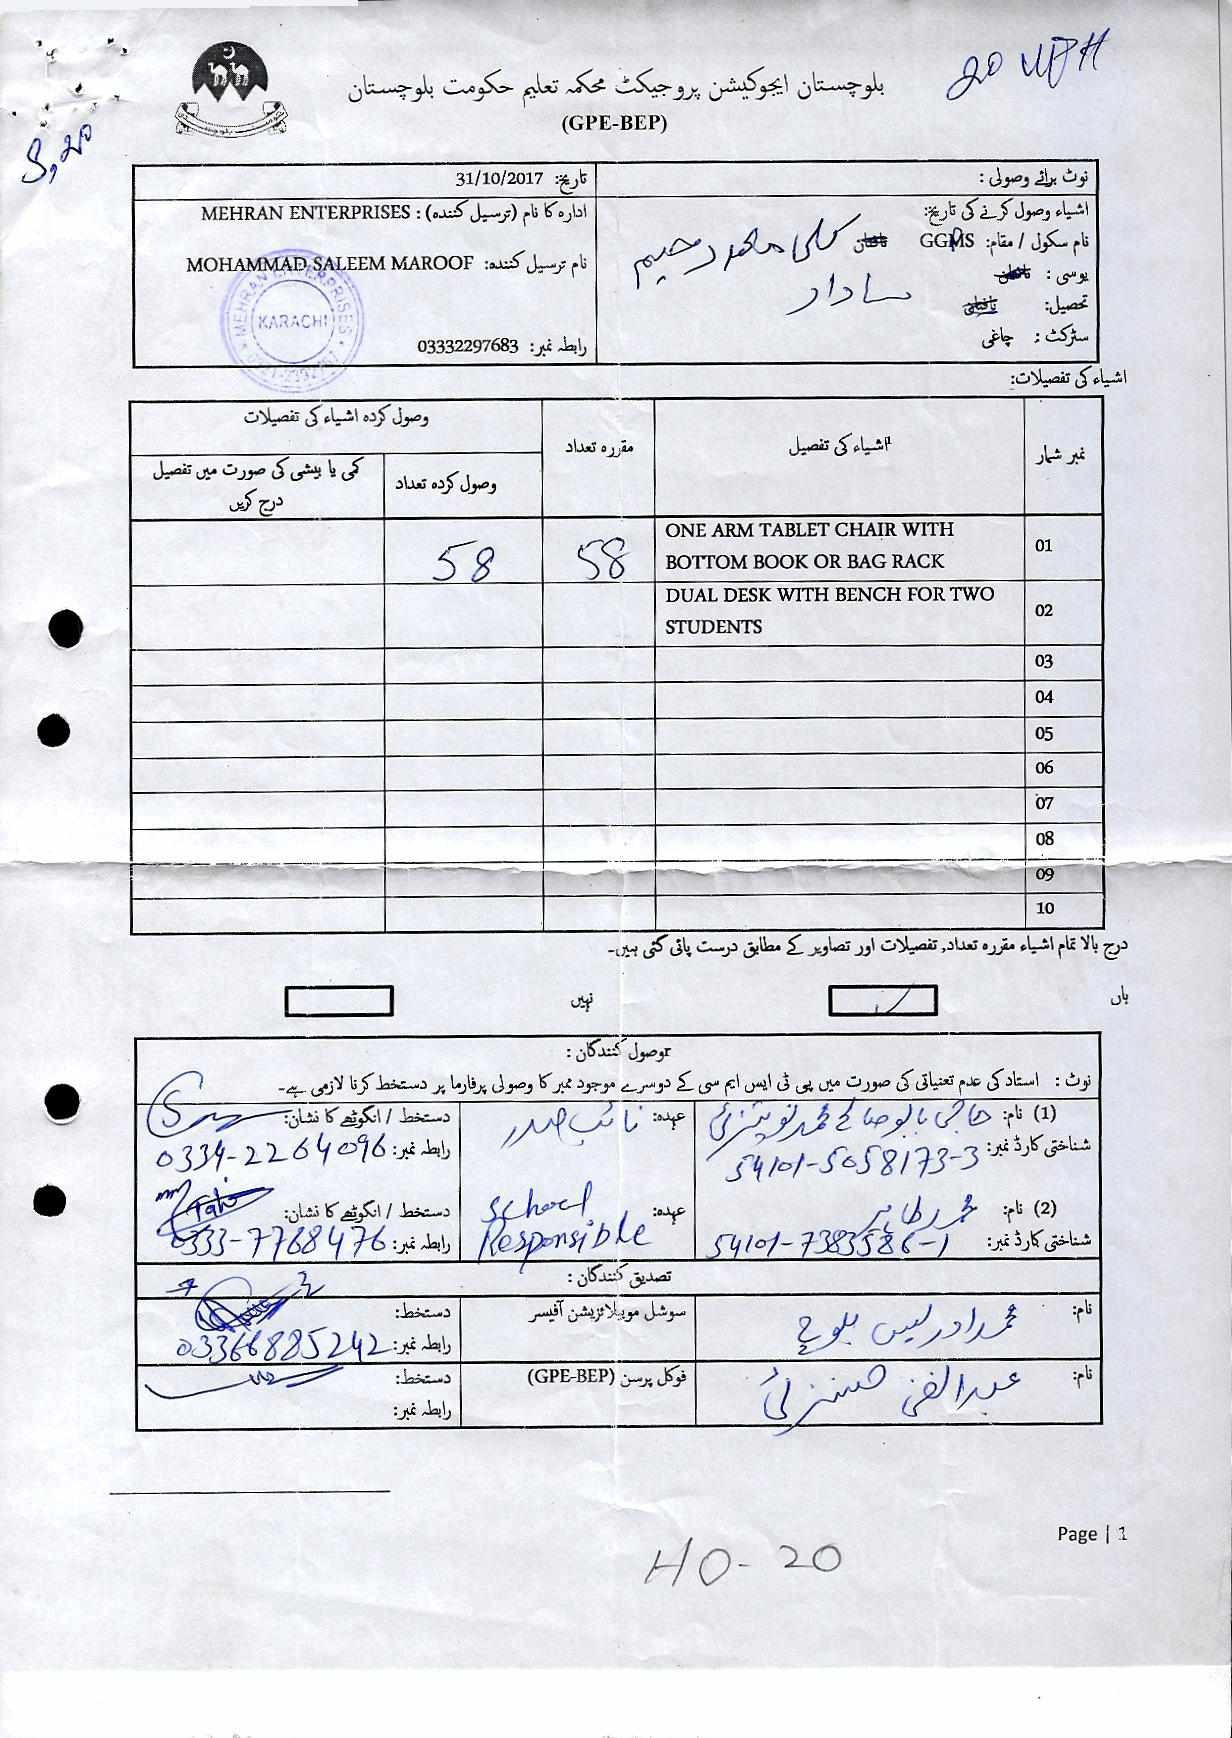 20
S, 20
بلوچستان ایجوکیشن پروجیکٹ محکمہ تعلیم حکومت بلوچستان
(GPE-BEP)
نوٹ برائے وصولی :
تاریخ: 31/10/2017
اشیاء وصول کرنے کی تاریخ:
ادارہ کا نام (ترسیل کنندہ) : MEHRAN ENTERPRISES
نام سکول / مقام: GGMS کلی محمد رحیم
نام ترسیل کنندہ: MOHAMMAD SALEEM MAROOF
یوسی :
تحصیل:
سٹرکٹ : چاغی
رابطہ نمبر: 03332297683
MEHRAN ENTERPRISES
KARACHI
اشیاء کی تفصیلات:
نمبر شمار
اشیاء کی تفصیل
مقررہ تعداد
وصول کردہ اشیاء کی تفصیلات
وصول کردہ تعداد
کمی یا بیشی کی صورت میں تفصیل
درج کریں
01 ONE ARM TABLET CHAIR WITH
BOTTOM BOOK OR BAG RACK 58 58
02 DUAL DESK WITH BENCH FOR TWO
STUDENTS
03
04
05
06
07
08
09
10
درج بالا تمام اشیاء مقررہ تعداد, تفصیلات اور تصاویر کے مطابق درست پائی گئی ہیں۔
ہاں
نہیں
وصول کنندگان :
نوٹ : استاد کی عدم تعنیاتی کی صورت میں پی ٹی ایس ایم سی کے دوسرے موجود ممبر کا وصولی پرفارما پر دستخط کرنا لازمی ہے۔
(1) نام: حاجی بابو صالح محمد
عہدہ: نائب صدر
دستخط / انگوٹھے کا نشان:
شناختی کارڈ نمبر: 54101-5058173-3
رابطہ نمبر: 0334-2264096
(2) نام: محمد طاہر
عہدہ: School
Responsible
دستخط / انگوٹھے کا نشان: Tahir
شناختی کارڈ نمبر: 54101-7383586-1
رابطہ نمبر: 0333-7768476
تصدیق کنندگان :
نام: محمد ادریس بلوچ
سوشل موبیلائزیشن آفیسر
دستخط:
رابطہ نمبر: 03366885242
نام: عبدالغنی
فوکل پرسن (GPE-BEP)
دستخط:
رابطہ نمبر:
Page | 1
HO-20